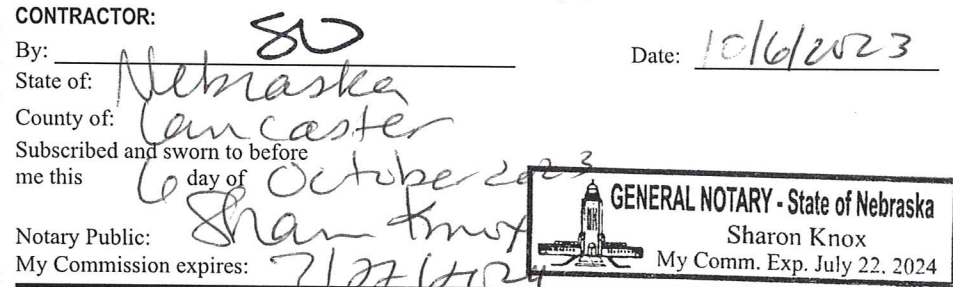 CONTRACTOR:
By: SU
Date: 10/6/2023
State of: Nebraska
County of: Lancaster
Subscribed and sworn to before
me this 6 day of October 2023
Notary Public: Sharon Knox
My Commission expires: 7/22/2024
GENERAL NOTARY - State of Nebraska
Sharon Knox
My Comm. Exp. July 22, 2024